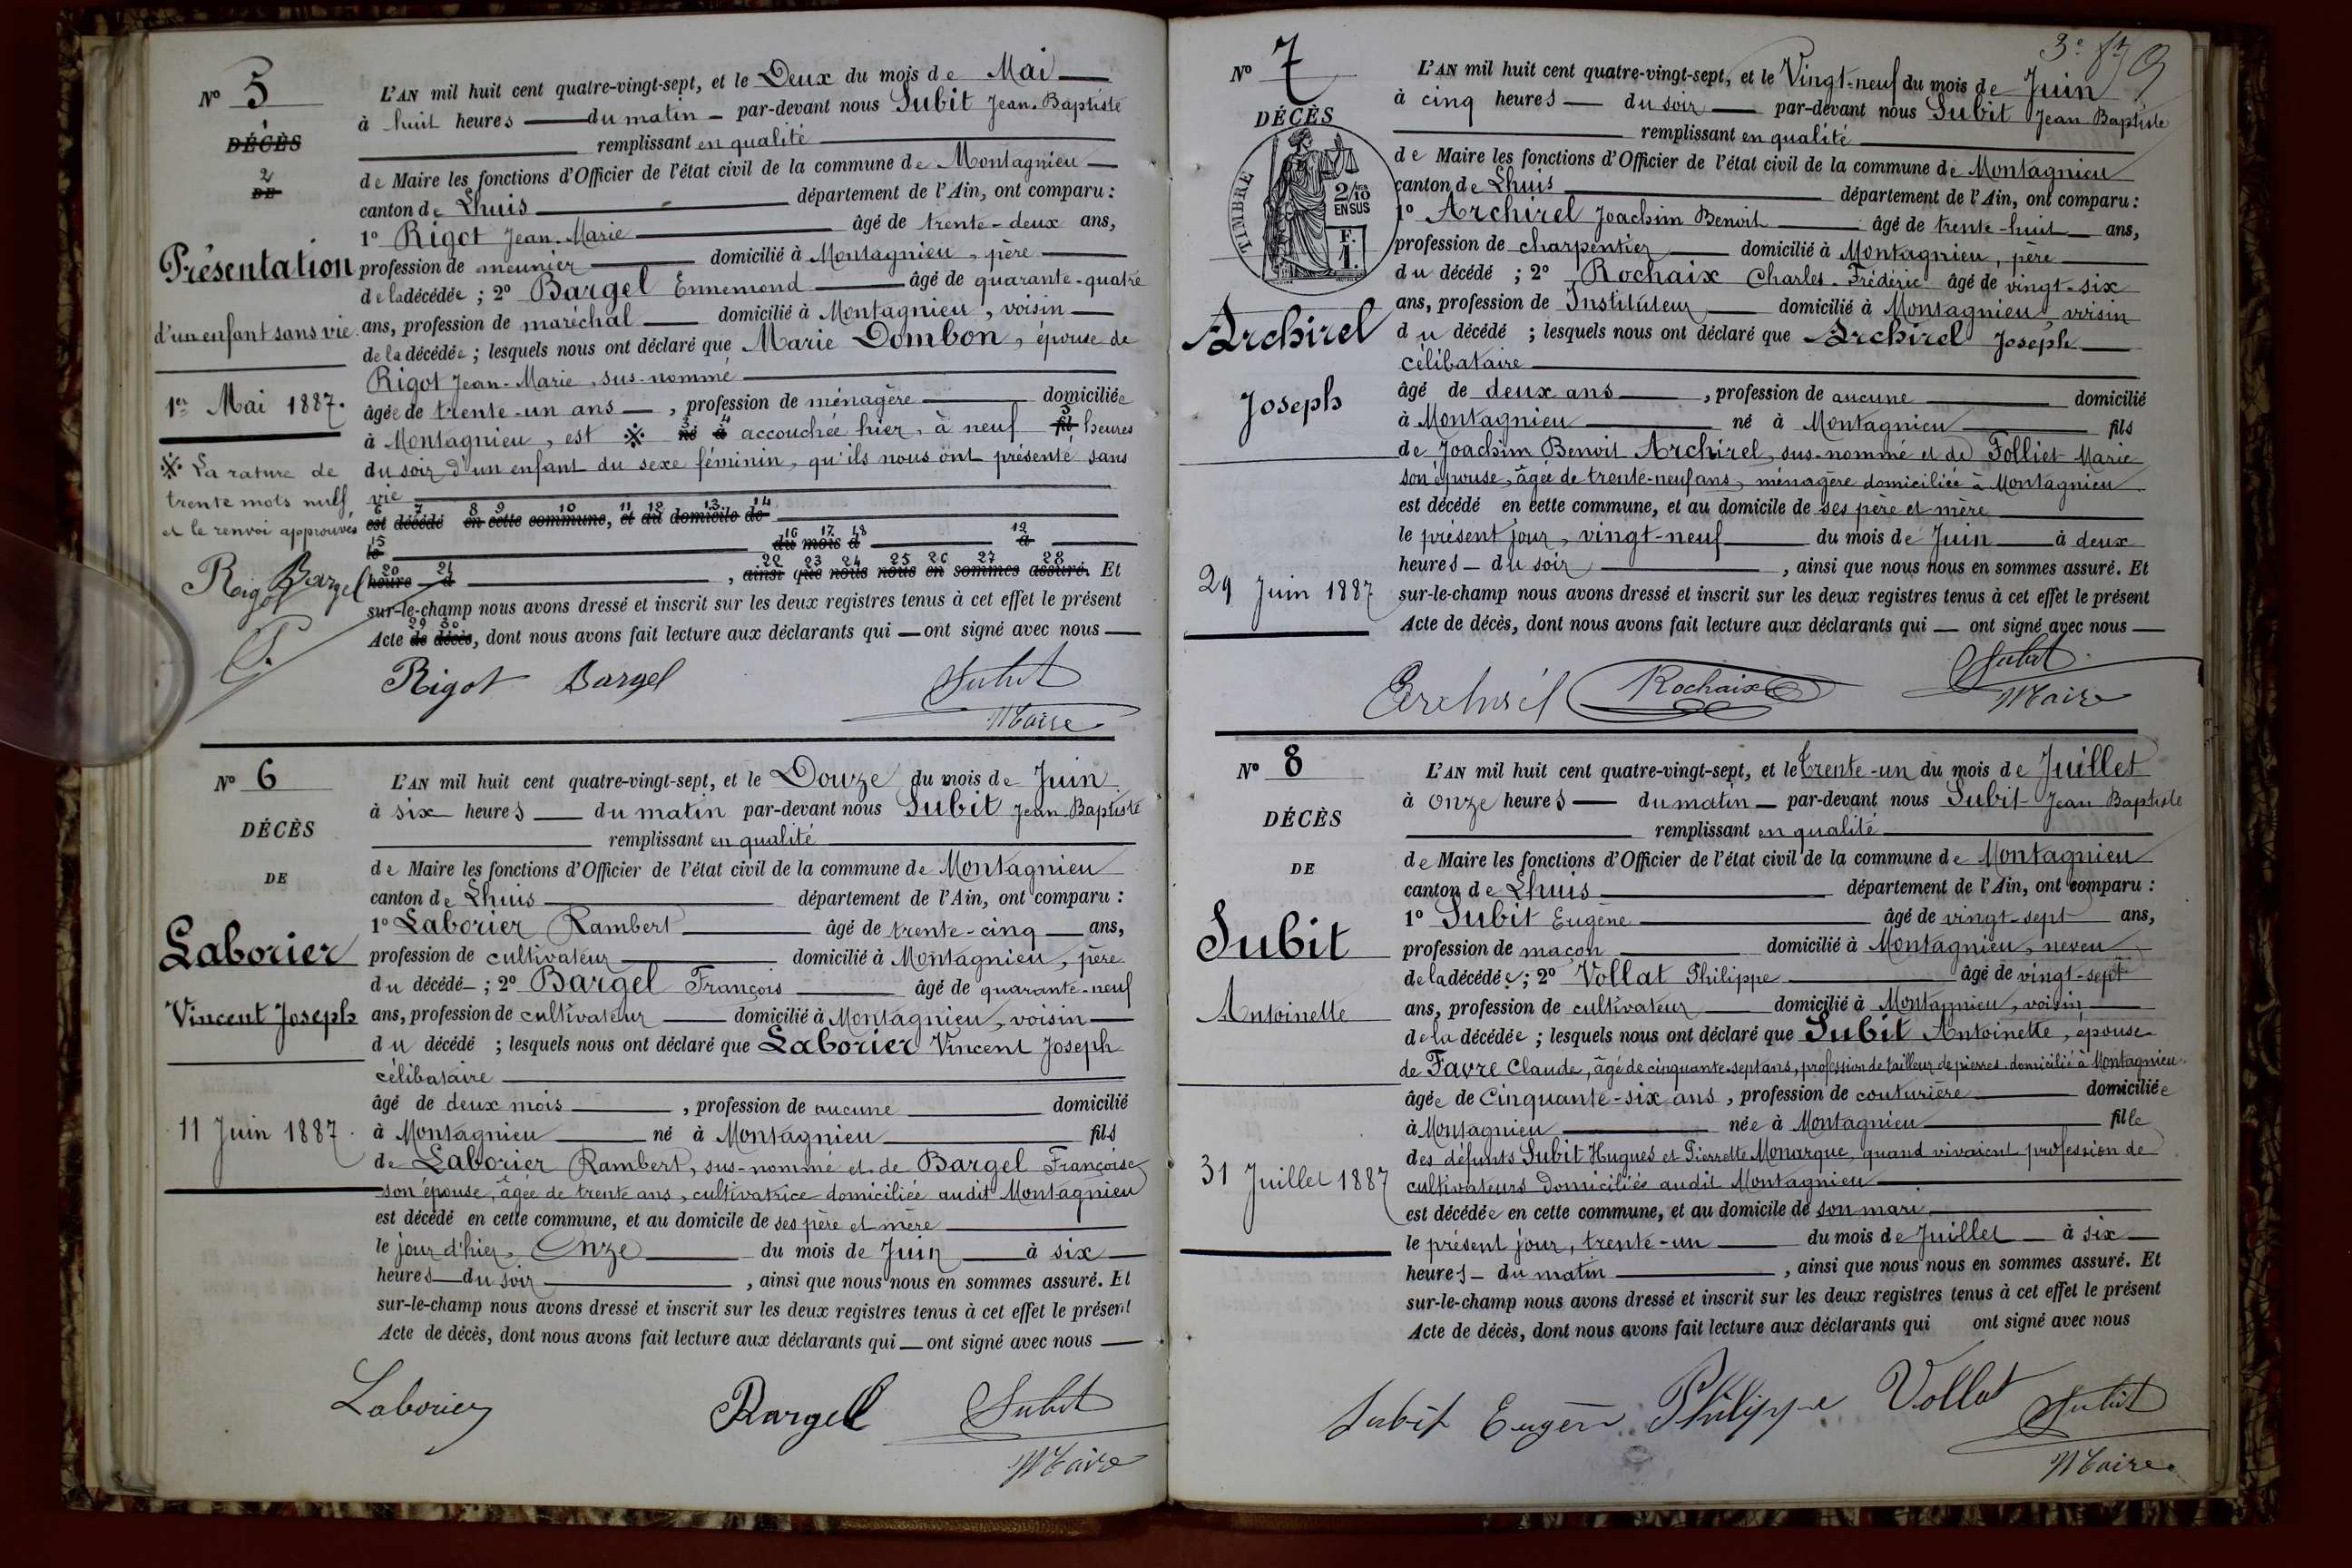 Nº 5
1
DÉCÈS
2
DE
Présentation
d'un enfant sans vie.
1er Mai 1887.
※ La rature de
trente mots nulf
et le renvoi approuvés
Rigot Bargel
L'AN mil huit cent quatre-vingt-sept, et le Deux du mois de Mai
à huit heures du matin par-devant nous Subit Jean-Baptiste
remplissant en qualité
de Maire les fonctions d'Officier de l'état civil de la commune de Montagnieu
canton de Lhuis département de l'Ain, ont comparu :
1º Rigot Jean-Marie âgé de trente-deux ans,
profession de meunier domicilié à Montagnieu, père
de la décédée ; 2º Bargel Ennemond âgé de quarante-quatre
ans, profession de maréchal domicilié à Montagnieu, voisin
de la décédée ; lesquels nous ont déclaré que Marie Dombon, épouse de
Rigot Jean-Marie, sus-nommé
âgée de trente-un ans, profession de ménagère domiciliée
3 4 5
à Montagnieu, est ※ né à accouchée hier, à neuf fil heures
du soir d'un enfant du sexe féminin, qu'ils nous ont présenté sans
vie
6 7 8 9 10 11 12 13 14
est décédé en cette commune, et au domicile de
15 16 17 18 19
le du mois d à
20 21 22 23 24 25 26 27 28
heure d , ainsi que nous nous en sommes assuré. Et
sur-le-champ nous avons dressé et inscrit sur les deux registres tenus à cet effet le présent
29 30
Acte de décès, dont nous avons fait lecture aux déclarants qui ont signé avec nous
Rigot Bargel Subit
Maire
Nº 6
DÉCÈS
DE
Laborier
Vincent Joseph
11 Juin 1887.
L'AN mil huit cent quatre-vingt-sept, et le Douze du mois de Juin
à six heures du matin par-devant nous Subit Jean-Baptiste
remplissant en qualité
de Maire les fonctions d'Officier de l'état civil de la commune de Montagnieu
canton de Lhuis département de l'Ain, ont comparu :
1º Laborier Rambert âgé de trente-cinq ans,
profession de cultivateur domicilié à Montagnieu, père
du décédé ; 2º Bargel François âgé de quarante-neuf
ans, profession de cultivateur domicilié à Montagnieu, voisin
du décédé ; lesquels nous ont déclaré que Laborier Vincent Joseph
célibataire
âgé de deux mois, profession de aucune domicilié
à Montagnieu né à Montagnieu fils
de Laborier Rambert, sus-nommé et de Bargel Françoise
son épouse, âgée de trente ans, cultivatrice domiciliée audit Montagnieu
est décédé en cette commune, et au domicile de ses père et mère
le jour d'hier, Onze du mois de Juin à six
heures du soir, ainsi que nous nous en sommes assuré. Et
sur-le-champ nous avons dressé et inscrit sur les deux registres tenus à cet effet le présent
Acte de décès, dont nous avons fait lecture aux déclarants qui ont signé avec nous
Laborier Bargel Subit
Maire
Nº 7
DÉCÈS
TIMBRE
2/10
EN SUS
F.
1.
Archirel
Joseph
29 Juin 1887
L'AN mil huit cent quatre-vingt-sept, et le Vingt-neuf du mois de Juin
à cinq heures du soir par-devant nous Subit Jean-Baptiste
remplissant en qualité
de Maire les fonctions d'Officier de l'état civil de la commune de Montagnieu
canton de Lhuis département de l'Ain, ont comparu :
1º Archirel Joachim Benoit âgé de trente-huit ans,
profession de charpentier domicilié à Montagnieu, père
du décédé ; 2º Rochaix Charles-Frédéric âgé de vingt-six
ans, profession de Instituteur domicilié à Montagnieu, voisin
du décédé ; lesquels nous ont déclaré que Archirel Joseph
célibataire
âgé de deux ans, profession de aucune domicilié
à Montagnieu né à Montagnieu fils
de Joachim Benoit Archirel, sus-nommé et de Folliet Marie
son épouse, âgée de trente-neuf ans, ménagère domiciliée à Montagnieu
est décédé en cette commune, et au domicile de ses père et mère
le présent jour, vingt-neuf du mois de Juin à deux
heures du soir, ainsi que nous nous en sommes assuré. Et
sur-le-champ nous avons dressé et inscrit sur les deux registres tenus à cet effet le présent
Acte de décès, dont nous avons fait lecture aux déclarants qui ont signé avec nous
Archirel Rochaix Subit
Maire
Nº 8
DÉCÈS
DE
Subit
Antoinette
31 Juillet 1887
L'AN mil huit cent quatre-vingt-sept, et le Trente-un du mois de Juillet
à onze heures du matin par-devant nous Subit Jean-Baptiste
remplissant en qualité
de Maire les fonctions d'Officier de l'état civil de la commune de Montagnieu
canton de Lhuis département de l'Ain, ont comparu :
1º Subit Eugène âgé de vingt-sept ans,
profession de maçon domicilié à Montagnieu, neveu
de la décédée ; 2º Vollat Philippe âgé de vingt-sept
ans, profession de cultivateur domicilié à Montagnieu, voisin
de la décédée ; lesquels nous ont déclaré que Subit Antoinette, épouse
de Favre Claude, âgé de cinquante-sept ans, profession de tailleur de pierres, domicilié à Montagnieu.
âgée de Cinquante-six ans, profession de couturière domiciliée
à Montagnieu née à Montagnieu fille
des défunts Subit Hugues et Pierrette Monarque, quand vivaient profession de
cultivateurs domiciliés audit Montagnieu
est décédée en cette commune, et au domicile de son mari
le présent jour, trente-un du mois de Juillet à six
heures du matin, ainsi que nous nous en sommes assuré. Et
sur-le-champ nous avons dressé et inscrit sur les deux registres tenus à cet effet le présent
Acte de décès, dont nous avons fait lecture aux déclarants qui ont signé avec nous
Subit Eugène Philippe Vollat Subit
Maire